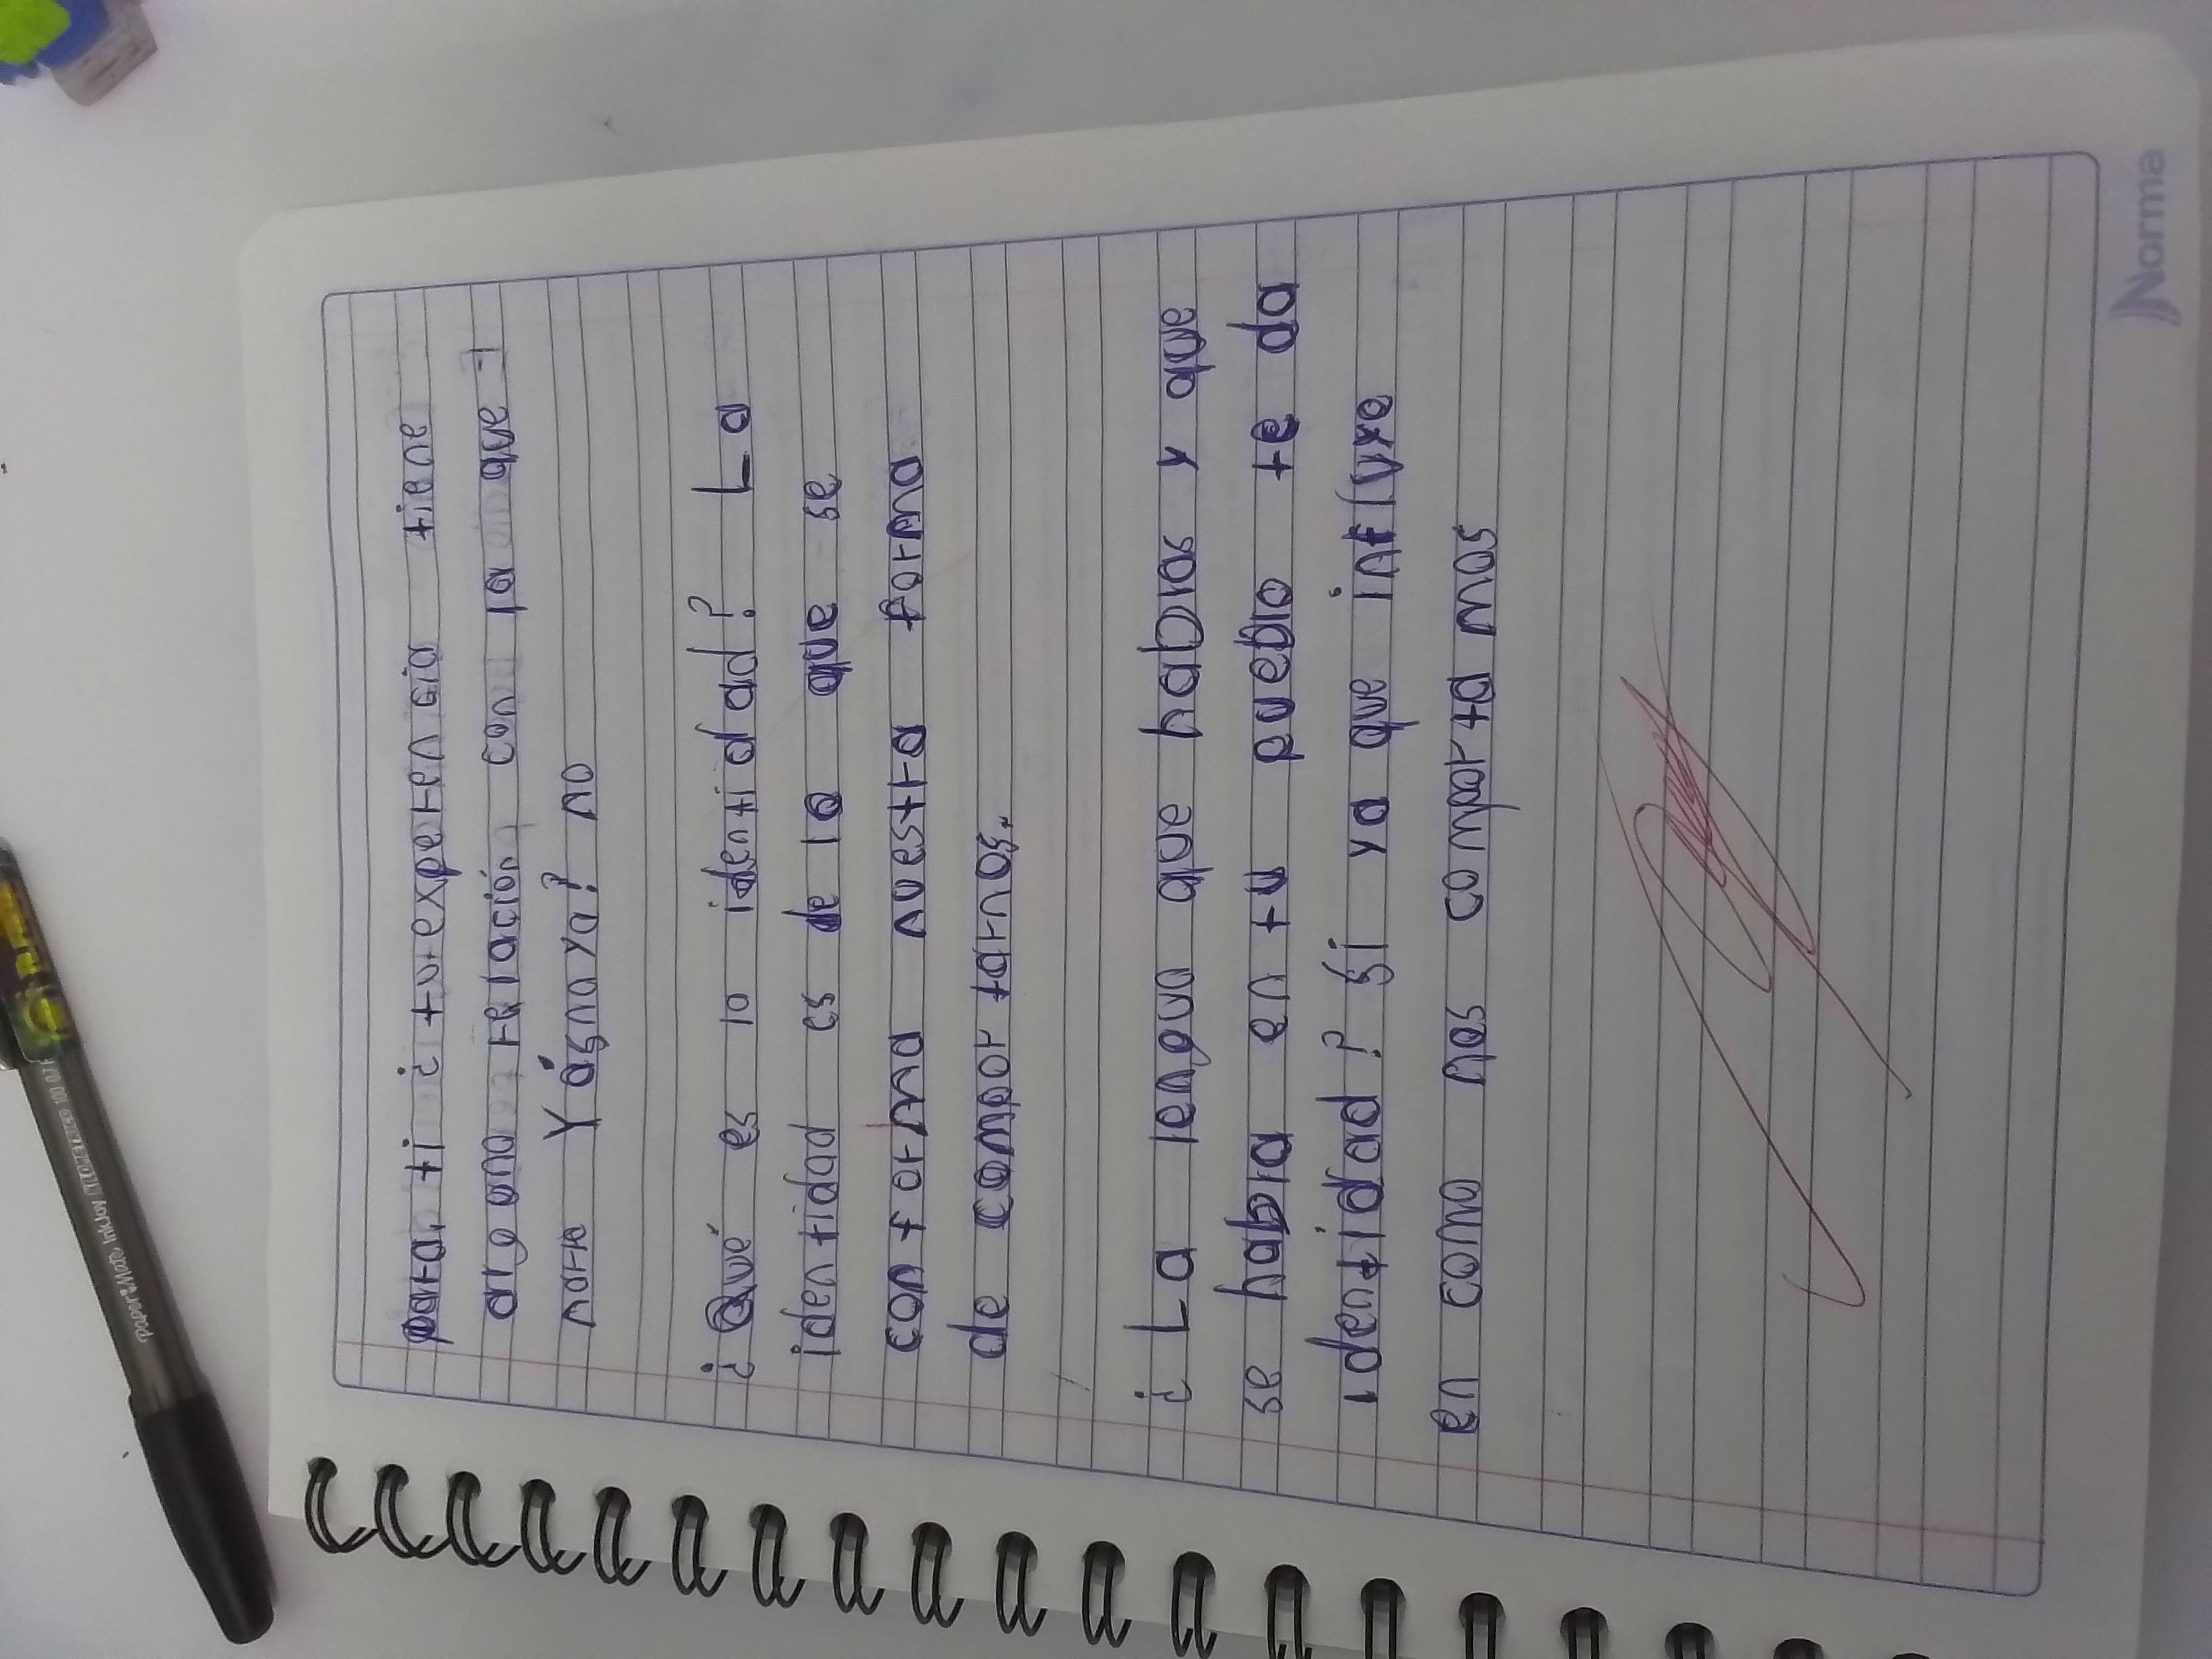 para, ti ¿ tu experiencia tiene
argo una relación con la que
narra Yásnaya? no
¿Qué es la identidad? La
identidad es de lo que se
conforma nuestra forma
de comportarnos.
¿La lengua que hablas y que
se habla en tu pueblo te da
identidad? Sí ya que influxe
en como nos comporta mos
Norma
paper:mate InkJoy